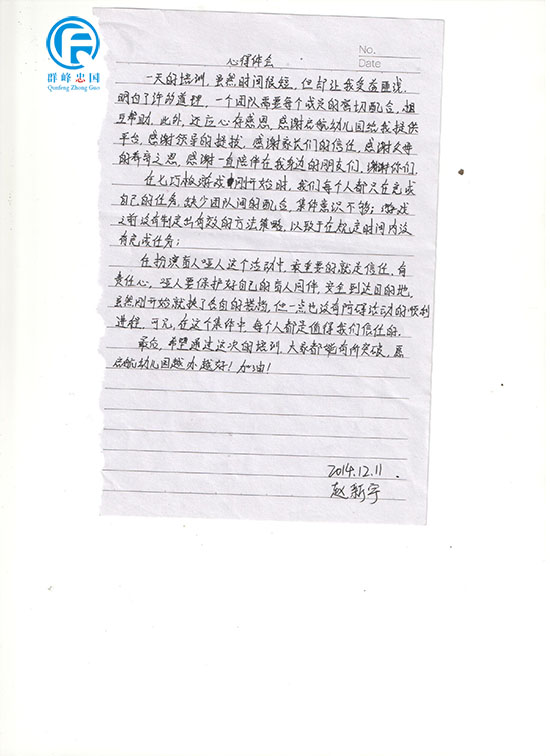 群峰忠国
Qunfeng Zhong Guo
No.
Date
心得体会
一天的培训,虽然时间很短,但却让我受益匪浅,
明白了许多道理,一个团队需要每个成员的密切配合,相
互帮助,此外,还应心存感恩,感谢启航幼儿园给我提供
平台,感谢领导的提拔,感谢家长们的信任,感谢父母
的养育之恩,感谢一直陪伴在我身边的朋友们,谢谢你们,
在七巧板游戏刚开始时,我们每个人都只在完成
自己的任务,缺少团队间的配合,集体意识不够;游戏
之前没有制定出有效的方法策略,以致于在规定时间内没
有完成任务;
在扮演盲人哑人这个活动中,最重要的就是信任,有
责任心,哑人要保护好自己的盲人同伴,安全到达目的地,
虽然刚开始就换了各自的搭档,但一点也没有阻碍活动的顺利
进程,可见,在这个集体中,每个人都是值得我们信任的.
最后,希望通过这次的培训,大家都能有所突破,愿
启航幼儿园越办越好!加油!
2014.12.11.
赵新宇